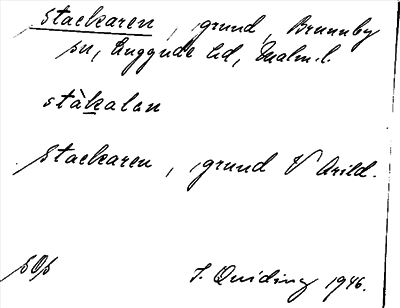 Stackaren, grund, Brunnby
sn, Luggude hd, Malm. l.
stàkalan
Stackaren, grund V Arild.
SOS
J. Quiding 1946.